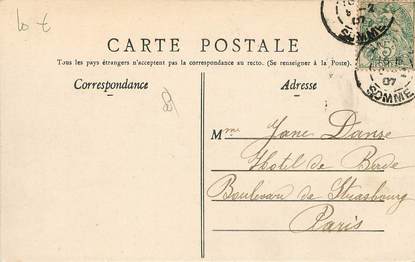 CARTE POSTALE
Tous les pays étrangers n'acceptent pas la correspondance au recto. (Se renseigner à la Poste).
Correspondance
Adresse
Mme Jane Danse
Hotel de Berde
Boulevard de Strasbourg
Paris
07
SOMME
07
SOMME